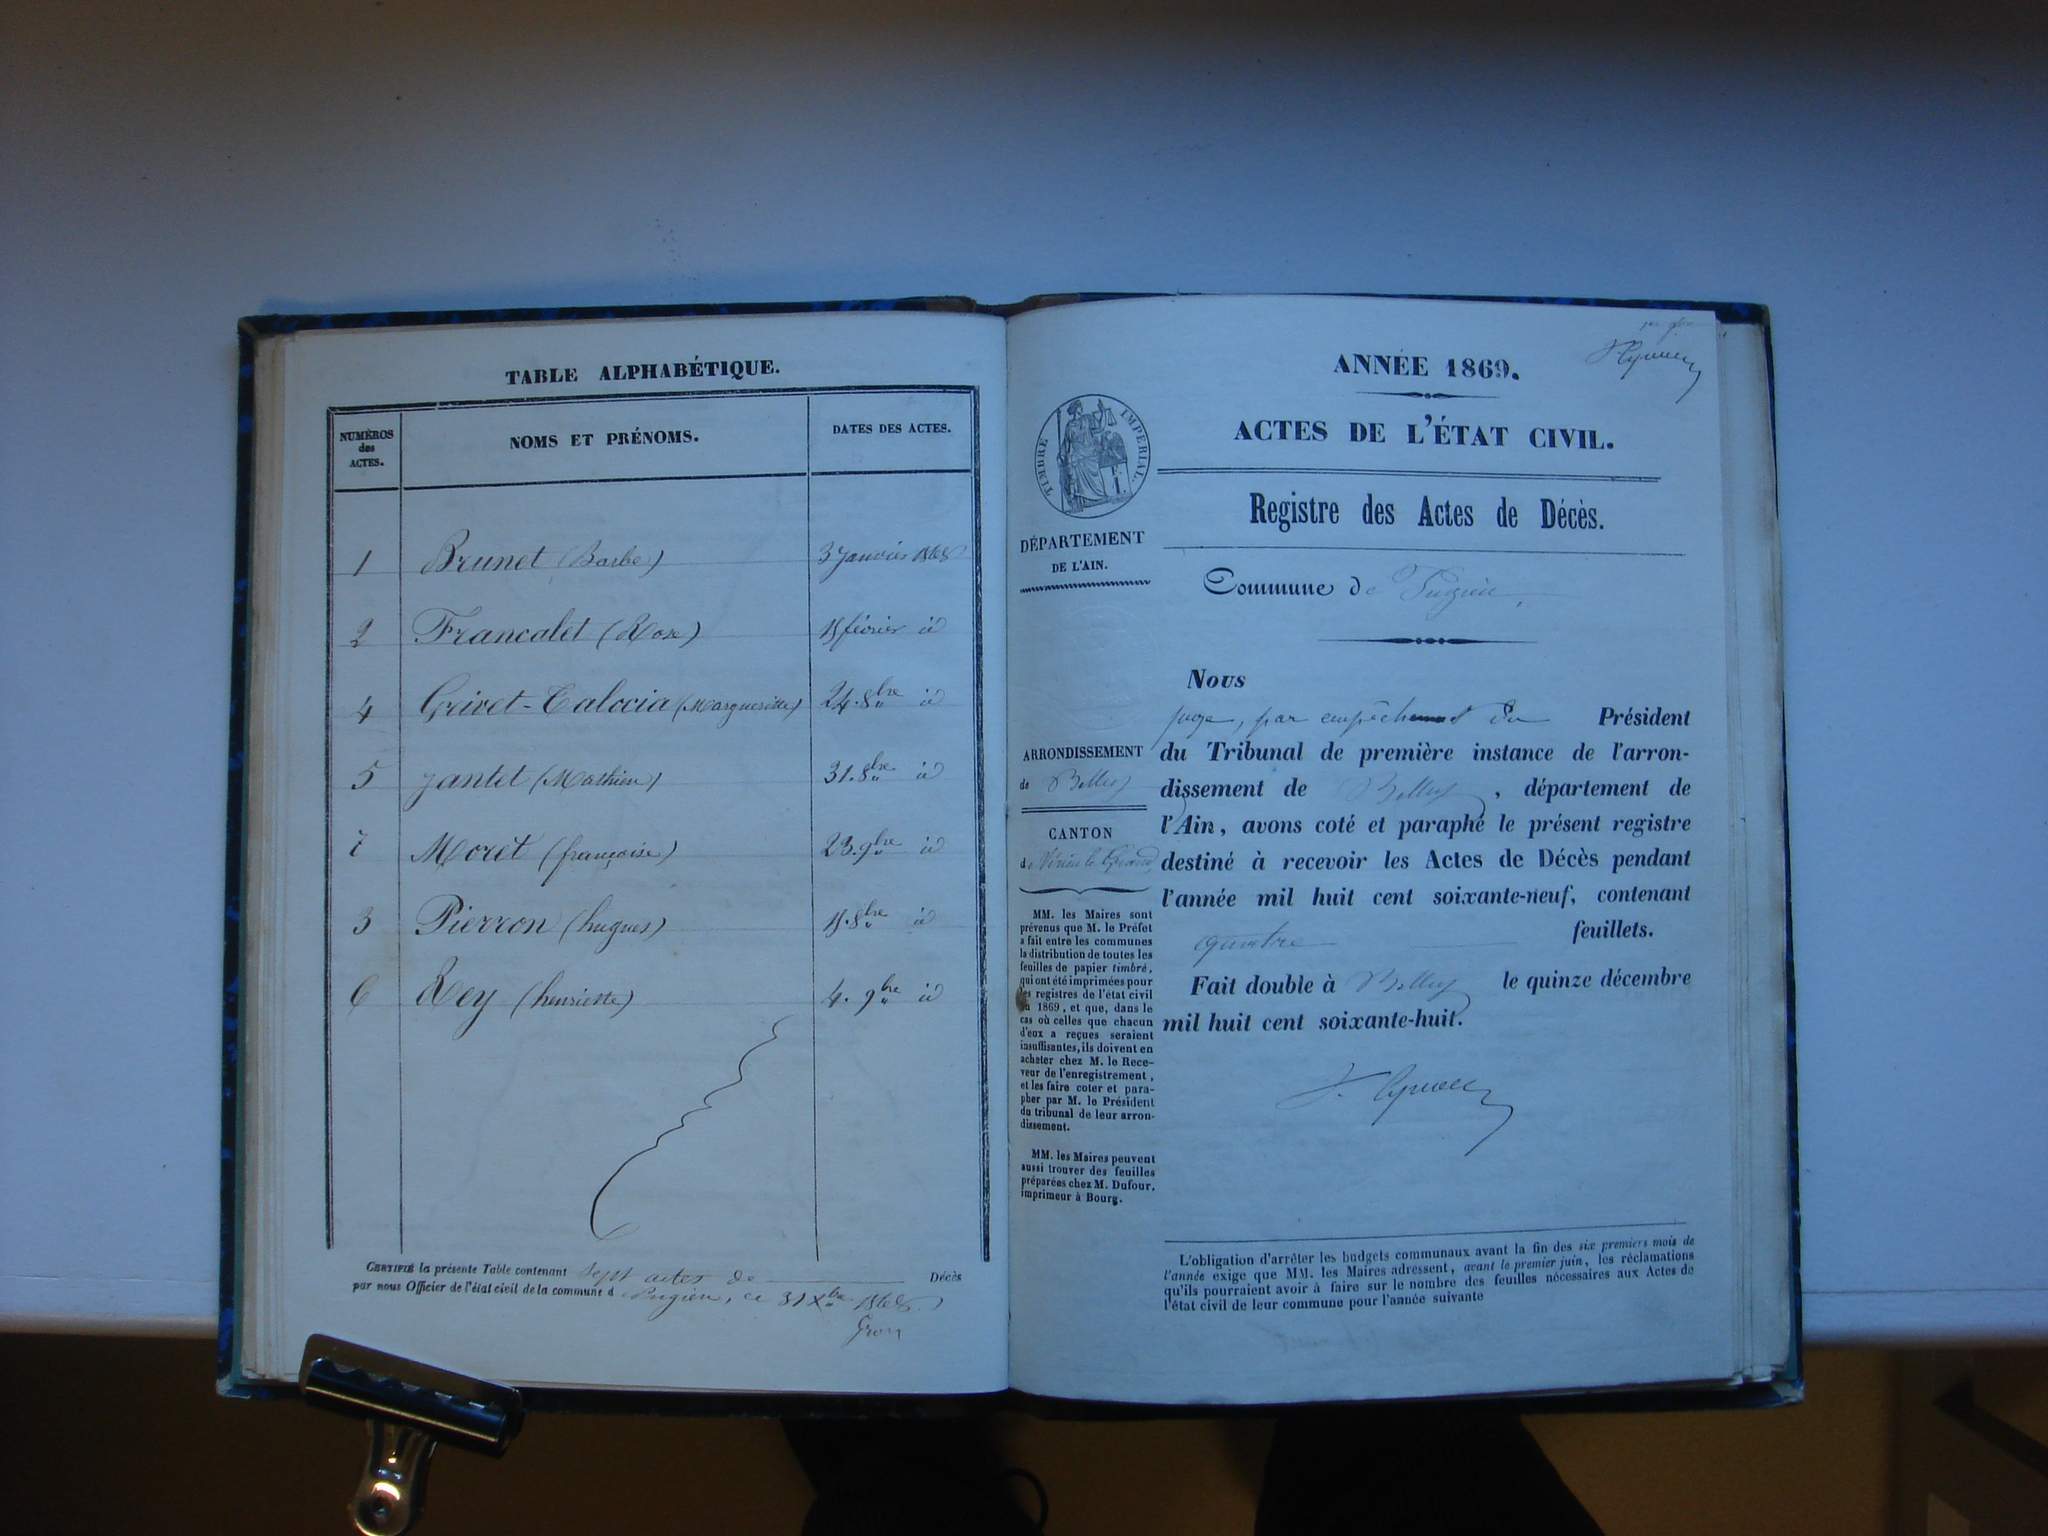 TABLE ALPHABÉTIQUE.
NUMÉROS
des
ACTES.
NOMS ET PRÉNOMS.
DATES DES ACTES.
1 Brunet (Barbe) 3 Janvier 1868
2 Francalet (Rose) 15 février id
4 Grivet-Talocia (Marguerite) 24. 8bre id
5 Jantet (Mathieu) 31. 8bre id
7 Moret (françoise) 23. 9bre id
3 Pierron (hugues) 15. 8bre id
6 Rey (henriette) 4. 9bre id
CERTIFIÉ la présente Table contenant Sept actes de Décès
par nous Officier de l'état civil de la commune d Pugieu, ce 31 Xbre 1868
ANNÉE 1869.
ACTES DE L'ÉTAT CIVIL.
TIMBRE IMPERIAL.
Registre des Actes de Décès.
DÉPARTEMENT
DE L'AIN.
Commune de Pugieu
ARRONDISSEMENT
de Belley
CANTON
de Virieu le Grand
MM. les Maires sont
prévenus que M. le Préfet
a fait entre les communes
la distribution de toutes les
feuilles de papier timbré,
qui ont été imprimées pour
les registres de l'état civil
de 1869, et que, dans le
cas où celles que chacun
d'eux a reçues seraient
insuffisantes, ils doivent en
acheter chez M. le Rece-
veur de l'enregistrement,
et les faire coter et para-
pher par M. le Président
du tribunal de leur arron-
dissement.
MM. les Maires peuvent
aussi trouver des feuilles
préparées chez M. Dufour,
imprimeur à Bourg.
Nous
juge, par empêchement du Président
du Tribunal de première instance de l'arron-
dissement de Belley, département de
l'Ain, avons coté et paraphé le présent registre
destiné à recevoir les Actes de Décès pendant
l'année mil huit cent soixante-neuf, contenant
quatre feuillets.
Fait double à Belley le quinze décembre
mil huit cent soixante-huit.
L'obligation d'arrêter les budgets communaux avant la fin des six premiers mois de
l'année exige que MM. les Maires adressent, avant le premier juin, les réclamations
qu'ils pourraient avoir à faire sur le nombre des feuilles nécessaires aux Actes de
l'état civil de leur commune pour l'année suivante